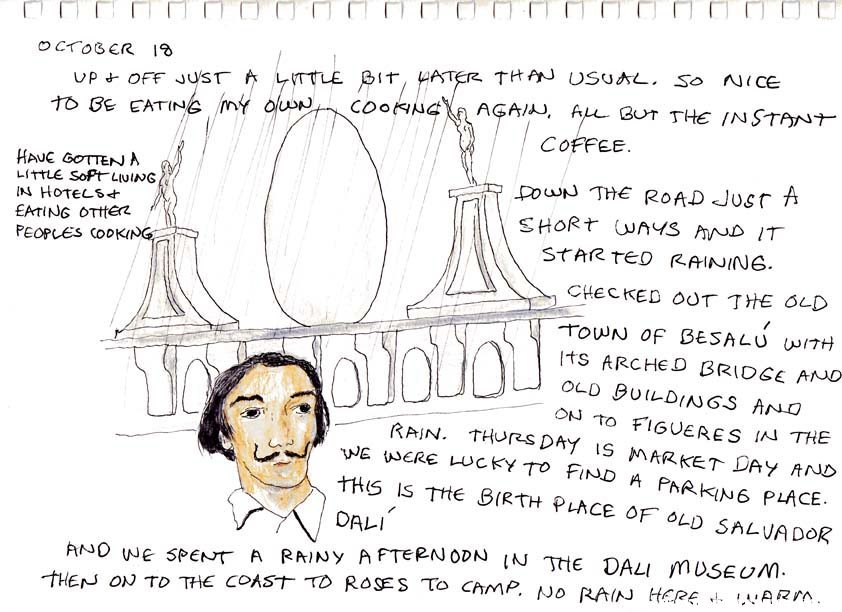 OCTOBER 18
UP & OFF JUST A LITTLE BIT LATER THAN USUAL. SO NICE
TO BE EATING MY OWN COOKING AGAIN. ALL BUT THE INSTANT
COFFEE.
HAVE GOTTEN A
LITTLE SOFT LIVING
IN HOTELS &
EATING OTHER
PEOPLES COOKING
DOWN THE ROAD JUST A
SHORT WAYS AND IT
STARTED RAINING.
CHECKED OUT THE OLD
TOWN OF BESALÚ WITH
ITS ARCHED BRIDGE AND
OLD BUILDINGS AND
ON TO FIGUERES IN THE
RAIN. THURSDAY IS MARKET DAY AND
WE WERE LUCKY TO FIND A PARKING PLACE.
THIS IS THE BIRTH PLACE OF OLD SALVADOR
DALÍ
AND WE SPENT A RAINY AFTERNOON IN THE DALI MUSEUM.
THEN ON TO THE COAST TO ROSES TO CAMP. NO RAIN HERE & WARM.